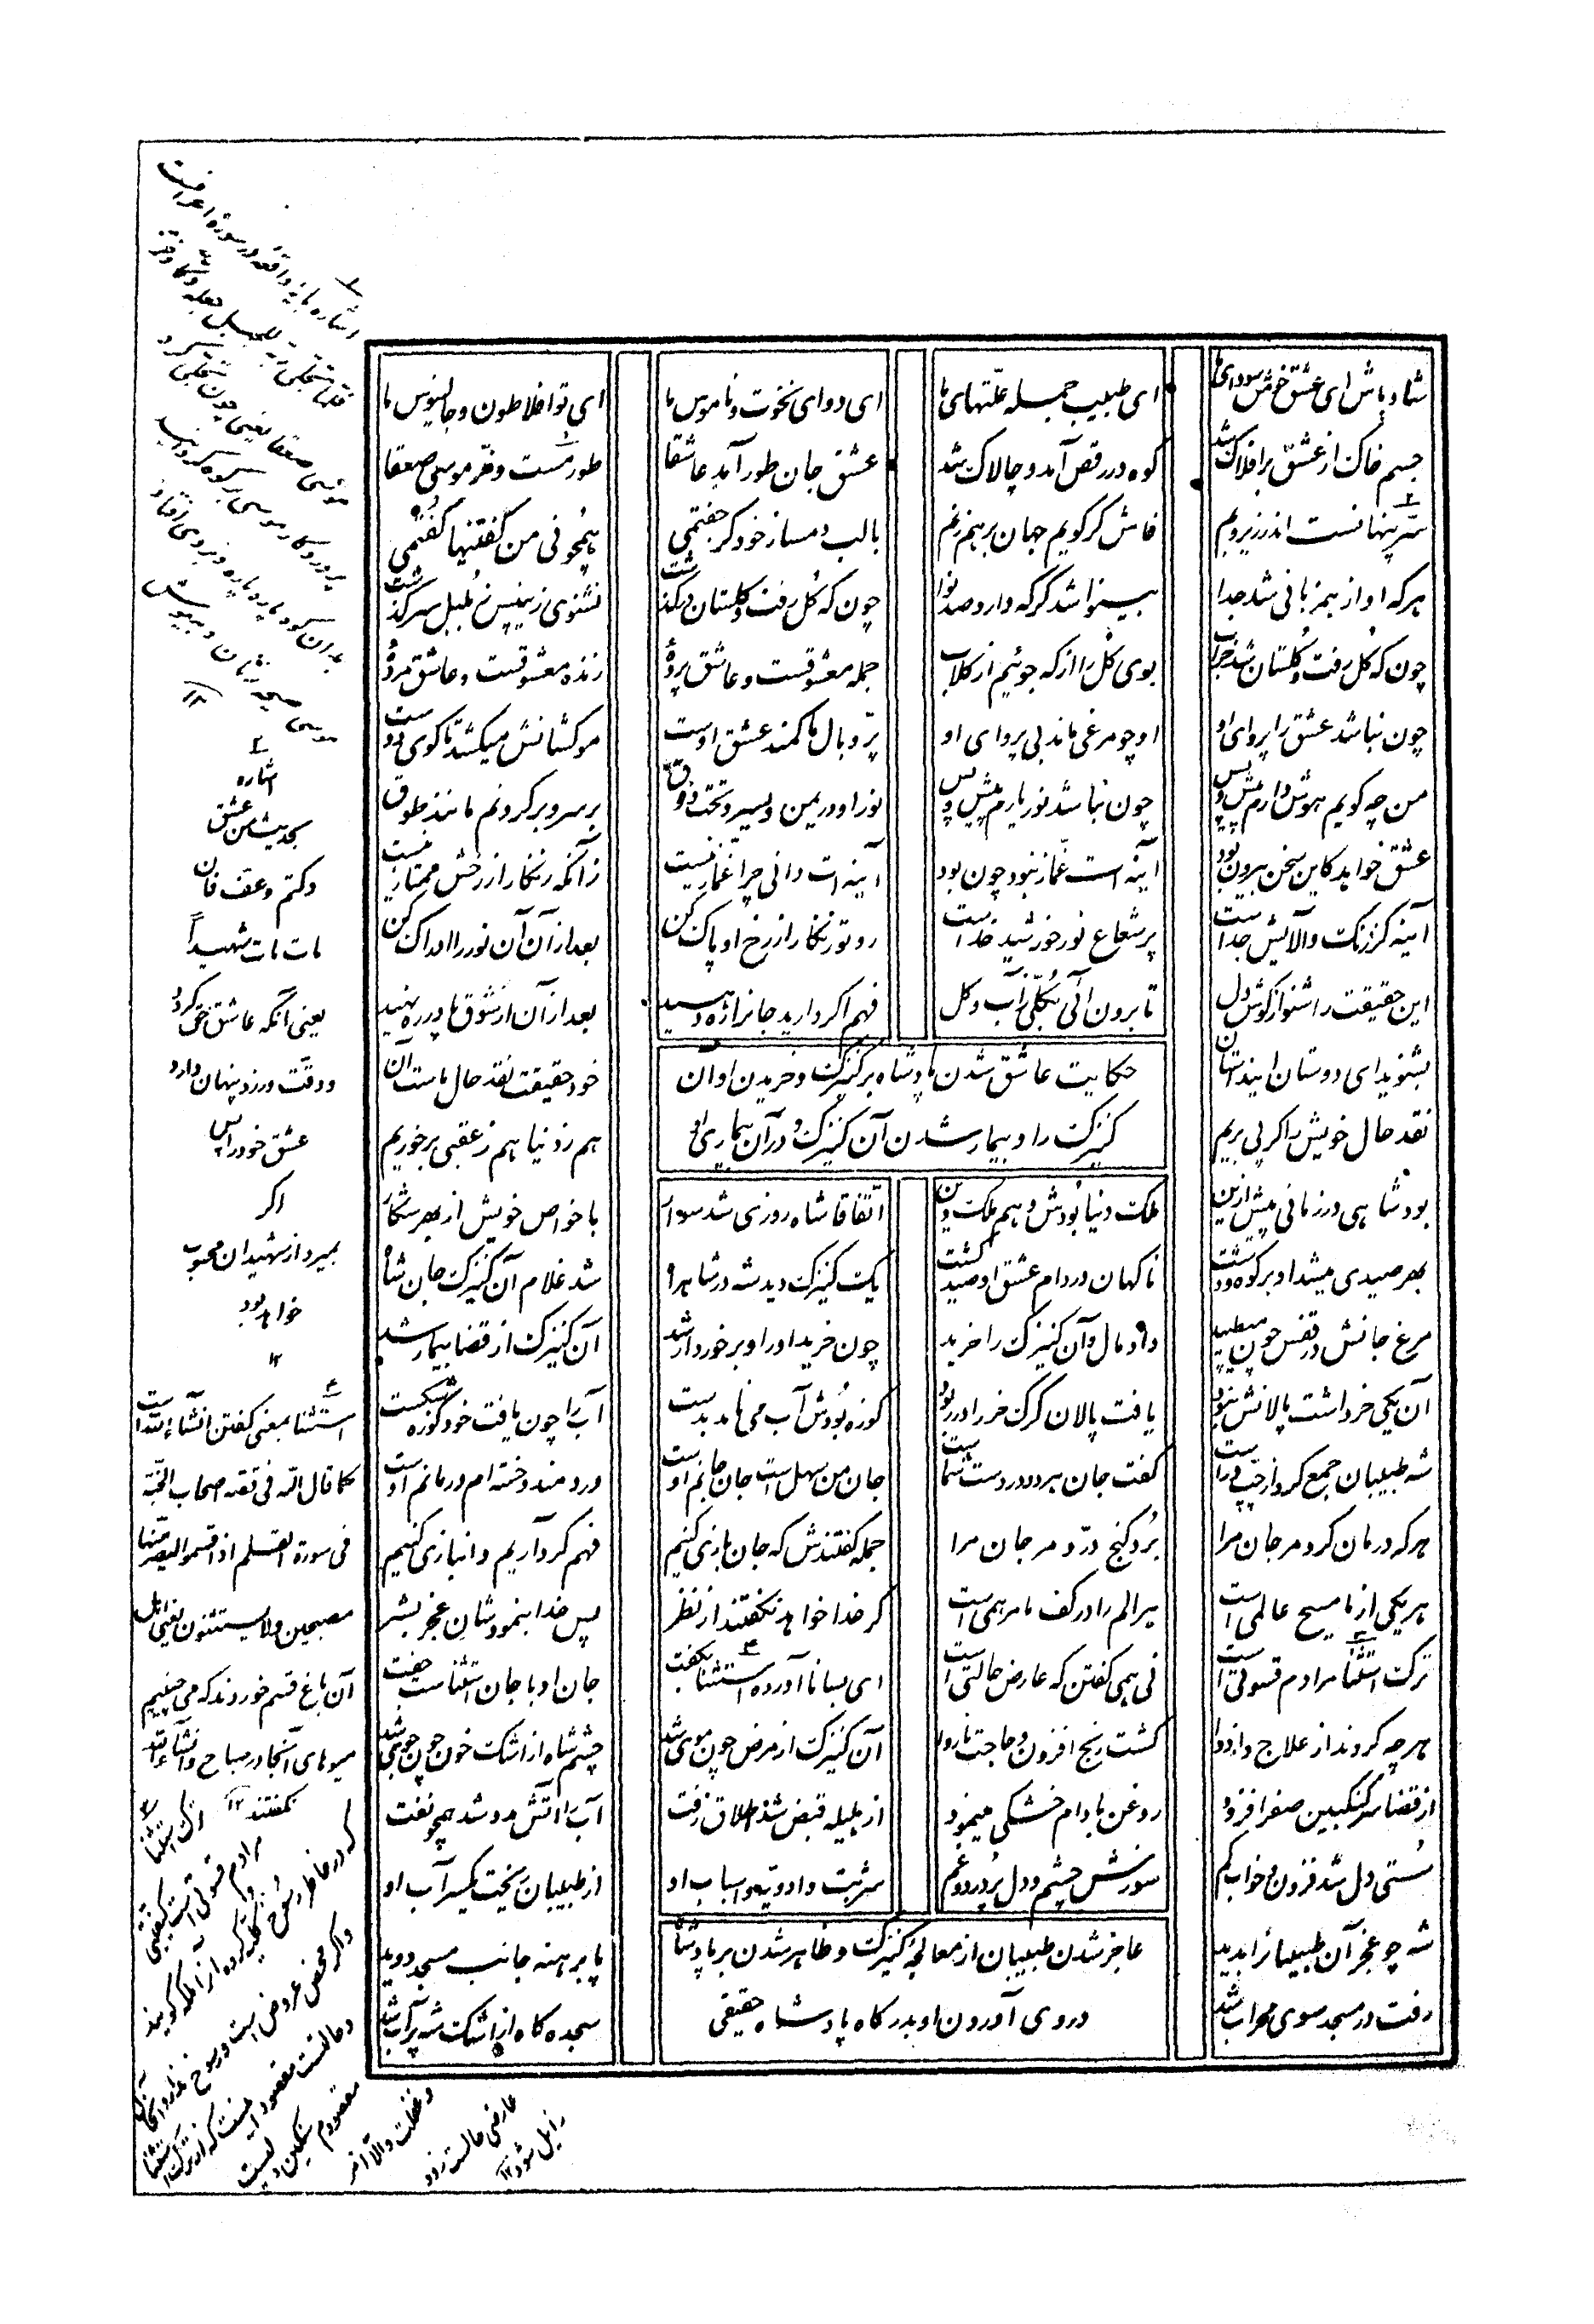 شاد باش ای عشق خوش سودای ما ای طبیب جمله علتهای ما ای دوای نخوت و ناموس ما ای تو افلاطون و جالینوس ما
جسم خاک از عشق بر افلاک شد کوه در رقص آمد و چالاک شد عشق جان طور آمد عاشقا طور مست و خر موسی صعقا
سر پنهانست اندر زیر و بم فاش گر گویم جهان بر هم زنم با لب دمساز خود گر جفتمی همچو نی من گفتنیها گفتمی
هر که او از همزبانی شد جدا بینوا شد گرچه دارد صد نوا چون که گل رفت و گلستان درگذشت نشنوی زین پس ز بلبل سرگذشت
چون که گل رفت و گلستان شد خراب بوی گل را از که جوئیم از گلاب جمله معشوقست و عاشق پردهٔ زنده معشوقست و عاشق مردهٔ
چون نباشد عشق را پروای او او چو مرغی ماند بی پروای او پر و بال ما کمند عشق اوست موکشانش میکشد تا کوی دوست
من چه گویم هوش دارم پیش و پس چون نباشد نور یارم پیش و پس نور او در یمن و یسر و تحت و فوق بر سر و بر گردنم مانند طوق
عشق خواهد کاین سخن بیرون بود آینه است غماز نبود چون بود آینه ات دانی چرا غماز نیست زانکه زنگار از رخش ممتاز نیست
آینه کز زنگ و آلایش جداست پر شعاع نور خورشید خداست رو تو زنگار از رخ او پاک کن بعد از آن آن نور را ادراک کن
این حقیقت را شنو از گوش دل تا برون آئی بکلی ز آب و گل فهم اگر دارید جانرا ره دهید بعد از آن از شوق پا در ره نهید
حکایت عاشق شدن پادشاه بر کنیزک و خریدن او آن
کنیزک را و بیمار شدن آن کنیزک و در آن بیماری او
بشنوید ای دوستان این داستان خود حقیقت نقد حال ماست آن
نقد حال خویش را گر پی بریم هم ز دنیا هم ز عقبی بر خوریم
بود شاهی در زمانی پیش ازین ملک دنیا بودش و هم ملک دین اتفاقا شاه روزی شد سوار با خواص خویش از بهر شکار
بهر صیدی میشد او بر کوه و دشت ناگهان در دام عشق او صید گشت یک کنیزک دید شه در شاهراه شد غلام آن کنیزک جان شاه
مرغ جانش در قفس چون میطپید داد مال و آن کنیزک را خرید چون خرید او را و برخوردار شد آن کنیزک از قضا بیمار شد
آن یکی خر داشت پالانش نبود یافت پالان گرگ خر را در ربود کوزه بودش آب می نامد بدست آب را چون یافت خود کوزه شکست
شه طبیبان جمع کرد از چپ و راست گفت جان هر دو در دست شماست جان من سهل است جان جانم اوست دردمند و خسته ام درمانم اوست
هر که درمان کرد مر جان مرا برد گنج در و مرجان مرا جمله گفتندش که جان بازی کنیم فهم گرد آریم و انبازی کنیم
هر یکی از ما مسیح عالمی است هر الم را در کف ما مرهمی است گر خدا خواهد نگفتند از بطر پس خدا بنمودشان عجز بشر
ترک استثنا مرادم قسوتی است نی همی گفتن که عارض حالتی است ای بسا نا آورده استثنا بگفت جان او با جان استثناست جفت
هر چه کردند از علاج و از دوا گشت رنج افزون و حاجت ناروا آن کنیزک از مرض چون موی شد چشم شاه از اشک خون چون جوی شد
از قضا سرکنگبین صفرا فزود روغن بادام خشکی مینمود از هلیله قبض شد اطلاق رفت آب را آتش مدد شد همچو نفت
سستی دل شد فزون و خواب کم سوزش چشم و دل پر درد و غم شربت و ادویه و اسباب او از طبیبان ریخت یکسر آب او
عاجز شدن طبیبان از معالجهٔ کنیزک و ظاهر شدن بر پادشاه
و روی آوردن او بدرگاه پادشاه حقیقی
شه چو عجز آن طبیبانرا بدید پا برهنه جانب مسجد دوید
رفت در مسجد سوی محراب شد سجده گاه از اشک شه پر آب شد
اشاره
بحدیث من عشق
و کتم و عف فمات
مات شهیداً
یعنی آنکه عاشق گردد
و عفت ورزد پنهان دارد
عشق خود را پس
اگر
بمیرد از شهیدان محبوب
خواهد بود
۱۲
استثنا بمعنی گفتن انشاء الله است
کما قال الله فی قصه اصحاب الجنة
فی سورة القلم اذ اقسموا لیصرمنها
مصبحین ولا یستثنون یعنی اهل
آن باغ قسم خوردند که می چینیم
میوهای آنجا در صباح و انشاء الله
نگفتند ۱۲